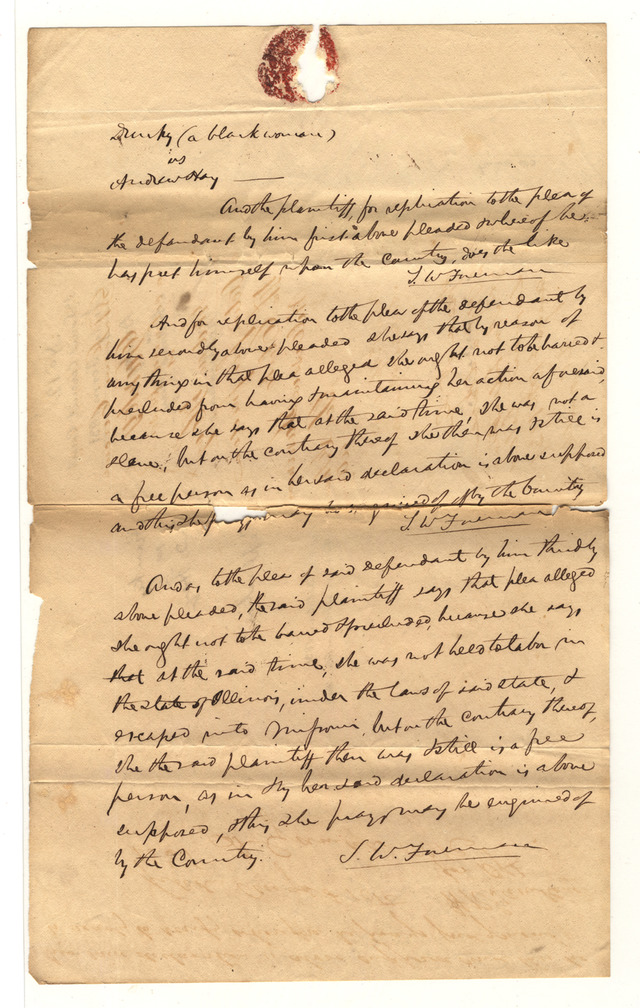 Dunky (a black woman)
vs
Andrew Hay
And the plaintiff, for replication to the plea of
the defendant by him first above pleaded & whereof he
has put himself upon the Country, does the like
S. W. Foreman
And for replication to the plea of the defendant by
him secondly above pleaded she says that by reason of
any thing in that plea alleged she ought not to be barred &
precluded from having & maintaining her action aforesaid,
because she says that at the said time, she was not a
slave, but on the contrary thereof she then was & still is
a free person as in her said declaration is above supposed
and this she prays may be enquired of by the Country
S. W. Foreman
And as to the plea of said defendant by him thirdly
above pleaded, the said plaintiff says that plea alleged
she ought not to be barred & precluded, because she says
that at the said time, she was not held to labor in
the state of Illinois, under the laws of said state, &
escaped into Missouri, but on the contrary thereof,
she the said plaintiff then was & still is a free
person, as in & by her said declaration is above
supposed, & this she prays may be enquired of
by the Country. S. W. Foreman